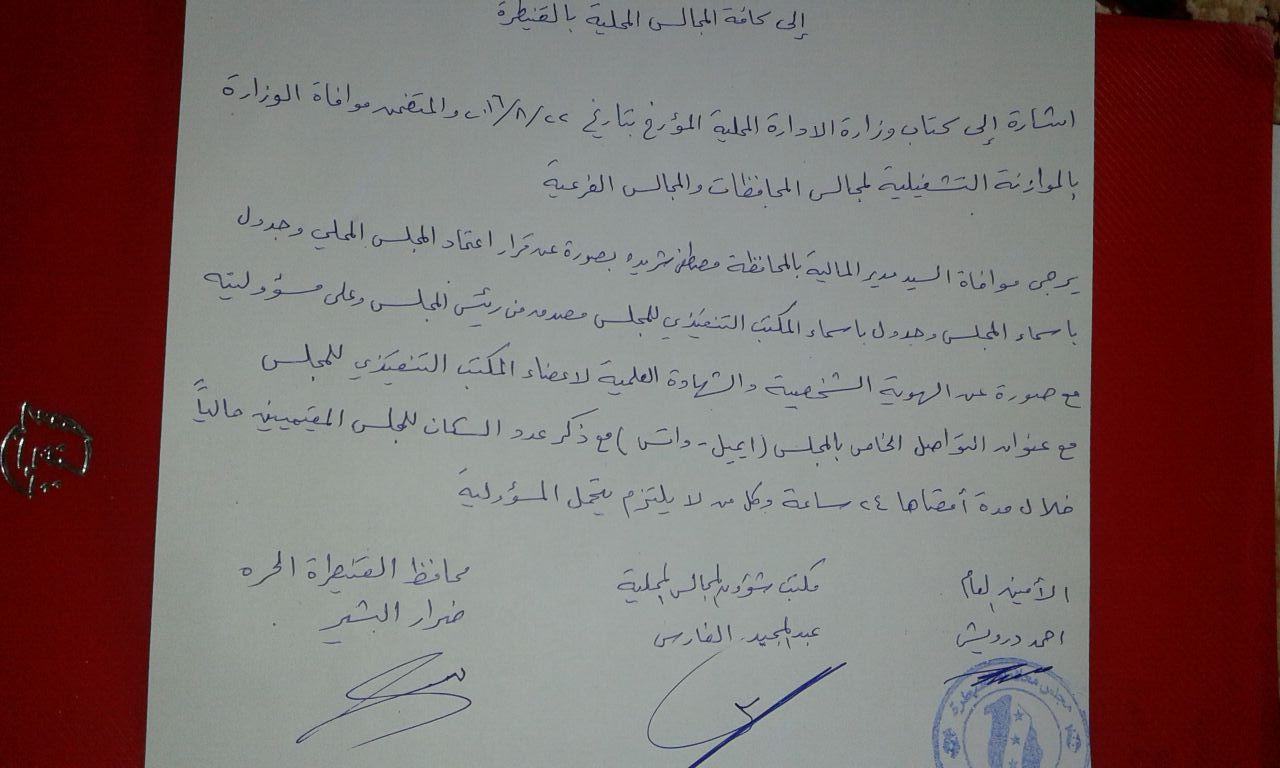 إلى كافة المجالس المحلية بالقنيطرة
اشارة إلى كتاب وزارة الادارة المحلية المؤرخ بتاريخ ٢٠١٦/٨/٢٢ والمتضمن موافاة الوزارة
بالموازنة التشغيلية لمجالس المحافظات والمجالس الفرعية
يرجى موافاة السيد مدير المالية بالمحافظة مصطفى بصورة عن قرار اعتماد المجلس المحلي وجدول
باسماء المجلس وجدول باسماء المكتب التنفيذي للمجلس مصدق من رئيس المجلس وعلى مسؤوليته
مع صورة عن الهوية الشخصية والشهادة العلمية لاعضاء المكتب التنفيذي للمجلس
مع عنوان التواصل الخاص بالمجلس (ايميل - واتس) مع ذكر عدد السكان للمجلس المقيميين حالياً
خلال مدة أقصاها ٢٤ ساعة وكل من لا يلتزم يتحمل المسؤولية
الأمين العام
احمد درويش
مكتب شؤون المجالس المحلية
عبد المجيد الفارس
محافظ القنيطرة الحره
ضرار البشير
مجلس محافظة القنيطرة